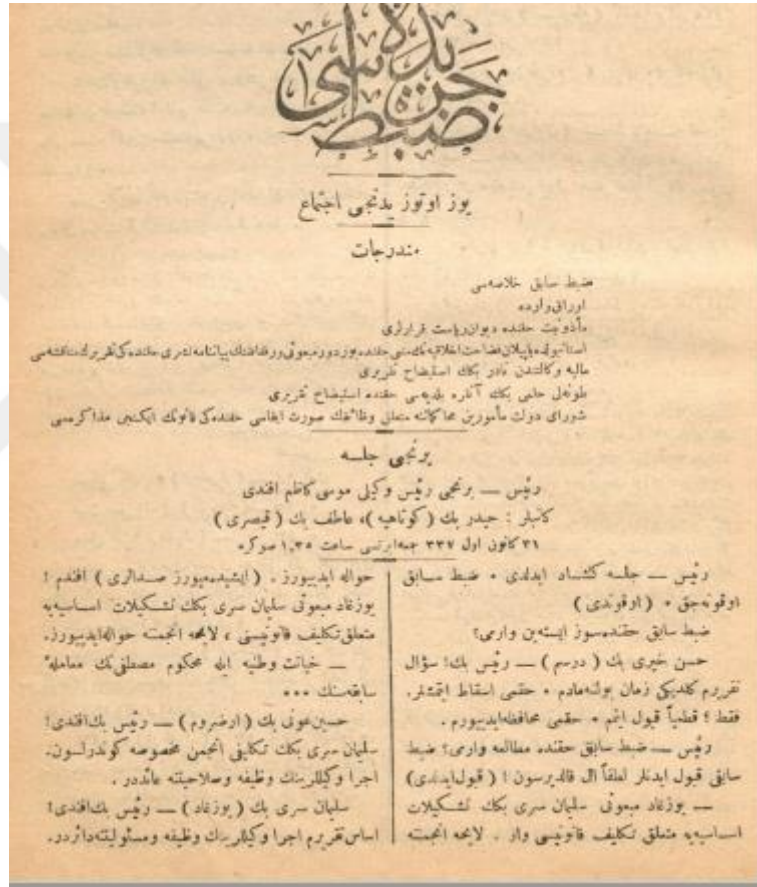 ضبط جریده‌سی
یوز اوتوز یدنجی اجتماع
مندرجات
ضبط سابق خلاصه‌سی
اوراق وارده
مأذونیت حقنده دیوان ریاست قرارلری
استانبولده یاپیلان فضاحت اخلاقیه‌نك منعی حقنده بوزدور مبعوثی ورفقاسنك بیاننامه نشری حقنده‌كی تقریرك مناقشه‌سی
مالیه وكالتندن نادر بكك استیضاح تقریری
طونه‌لی حلمی بكك آنقره بلدیه‌سی حقنده استیضاح تقریری
شورای دولت مأمورین محاكماتنه متعلق وظائفك صورت ایفاسی حقنده‌كی قانونك ایكنجی مذاكره‌سی
برنجی جلسه
رئیس — برنجی رئیس وكیلی موسی كاظم افندی
كاتبلر : حیدر بك ( كوتاهیه )، عاطف بك ( قیصری )
٣١ كانون اول ٣٣٧ جمعه‌ایرتسی ساعت ١،٣٥ صوكره
رئیس — جلسه كشاد ایدلدی ٠ ضبط سابق
اوقونه‌جق ٠ ( اوقوندی )
ضبط سابق حقنده‌سوز ایسته‌ین وارمی؟
حسن خیری بك ( درسم ) — رئیس بك! سؤال
تقریرم كلدیكی زمان بولنه‌مادم ٠ حقمی اسقاط ایتمشلر.
فقط ؛ قطعیاً قبول ایتم ٠ حقمی محافظه‌ایدییورم .
رئیس — ضبط سابق حقنده مطالعه وارمی؟ ضبط
سابقی قبول ایدنلر لطفاً ال قالدیرسون ! ( قبول‌ایدلدی )
— یوزغاد مبعوثی سلیمان سری بكك تشكیلات
اساسیه‌یه متعلق تكلیف قانونیسی وار . لایحه انجمننه
حواله ایدییورز . ( ایشیده‌میورز صدالری ) افندم !
یوزغاد مبعوثی سلیمان سری بكك تشكیلات اساسیه‌یه
متعلق تكلیف قانونیسنی ، لایحه انجمننه حواله‌ایدییورز.
— خیانت وطنیه ایله محكوم مصطفی‌نك معاملهٔ
سابقه‌سنك ٠٠٠
حسین عونی بك ( ارضروم ) — رئیس بك‌افندی!
سلیمان سری بكك تكلیفی انجمن مخصوصه كوندرلسون.
اجرا وكیللرینك وظیفه وصلاحیتنه عائددر .
سلیمان سری بك ( یوزغاد ) — رئیس بك‌افندی!
اساس تقریرم اجرا وكیللرینك وظیفه ومسئولیتنه‌دائردر.